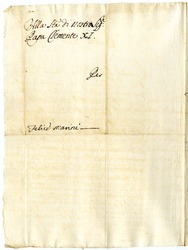 Alla Stà di Nostro Sigʳ
Papa Clemente XI.
Per
Felice Marini